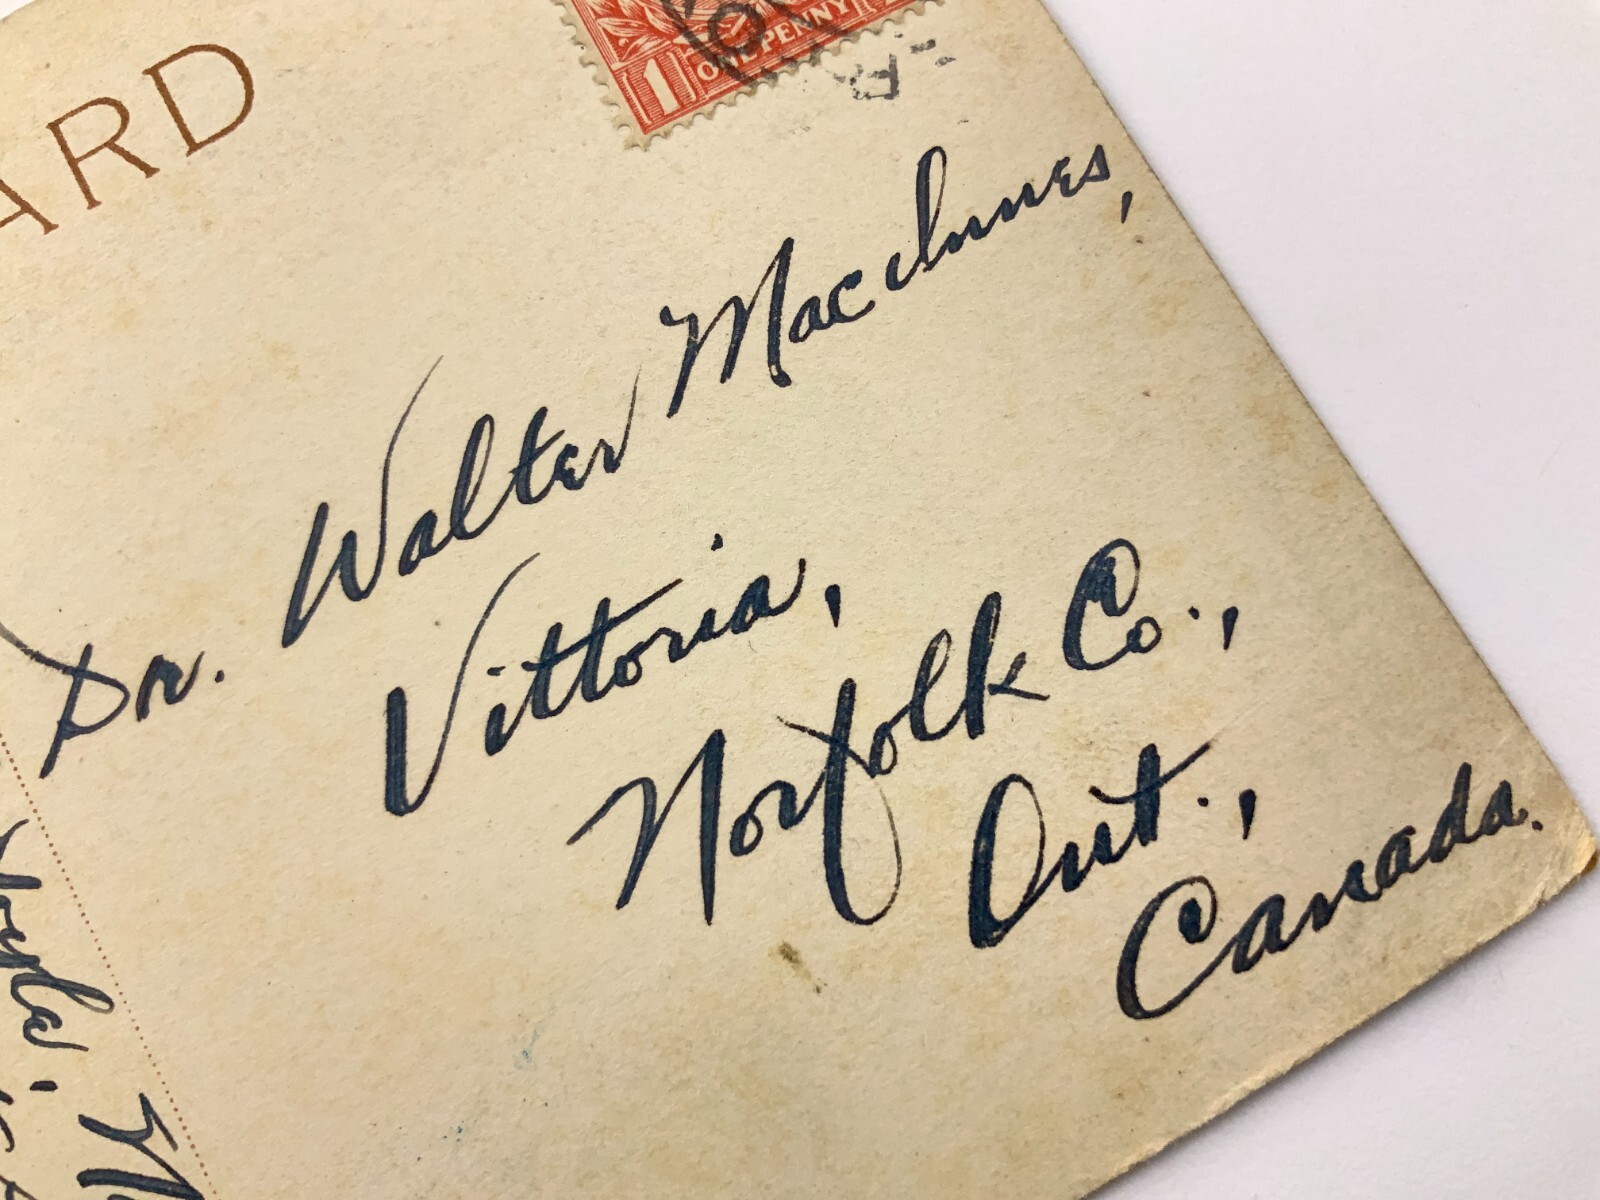 ARD
1 ONE PENNY
Dr. Walter MacInnes,
Vittoria,
Norfolk Co.,
Ont.,
Canada.